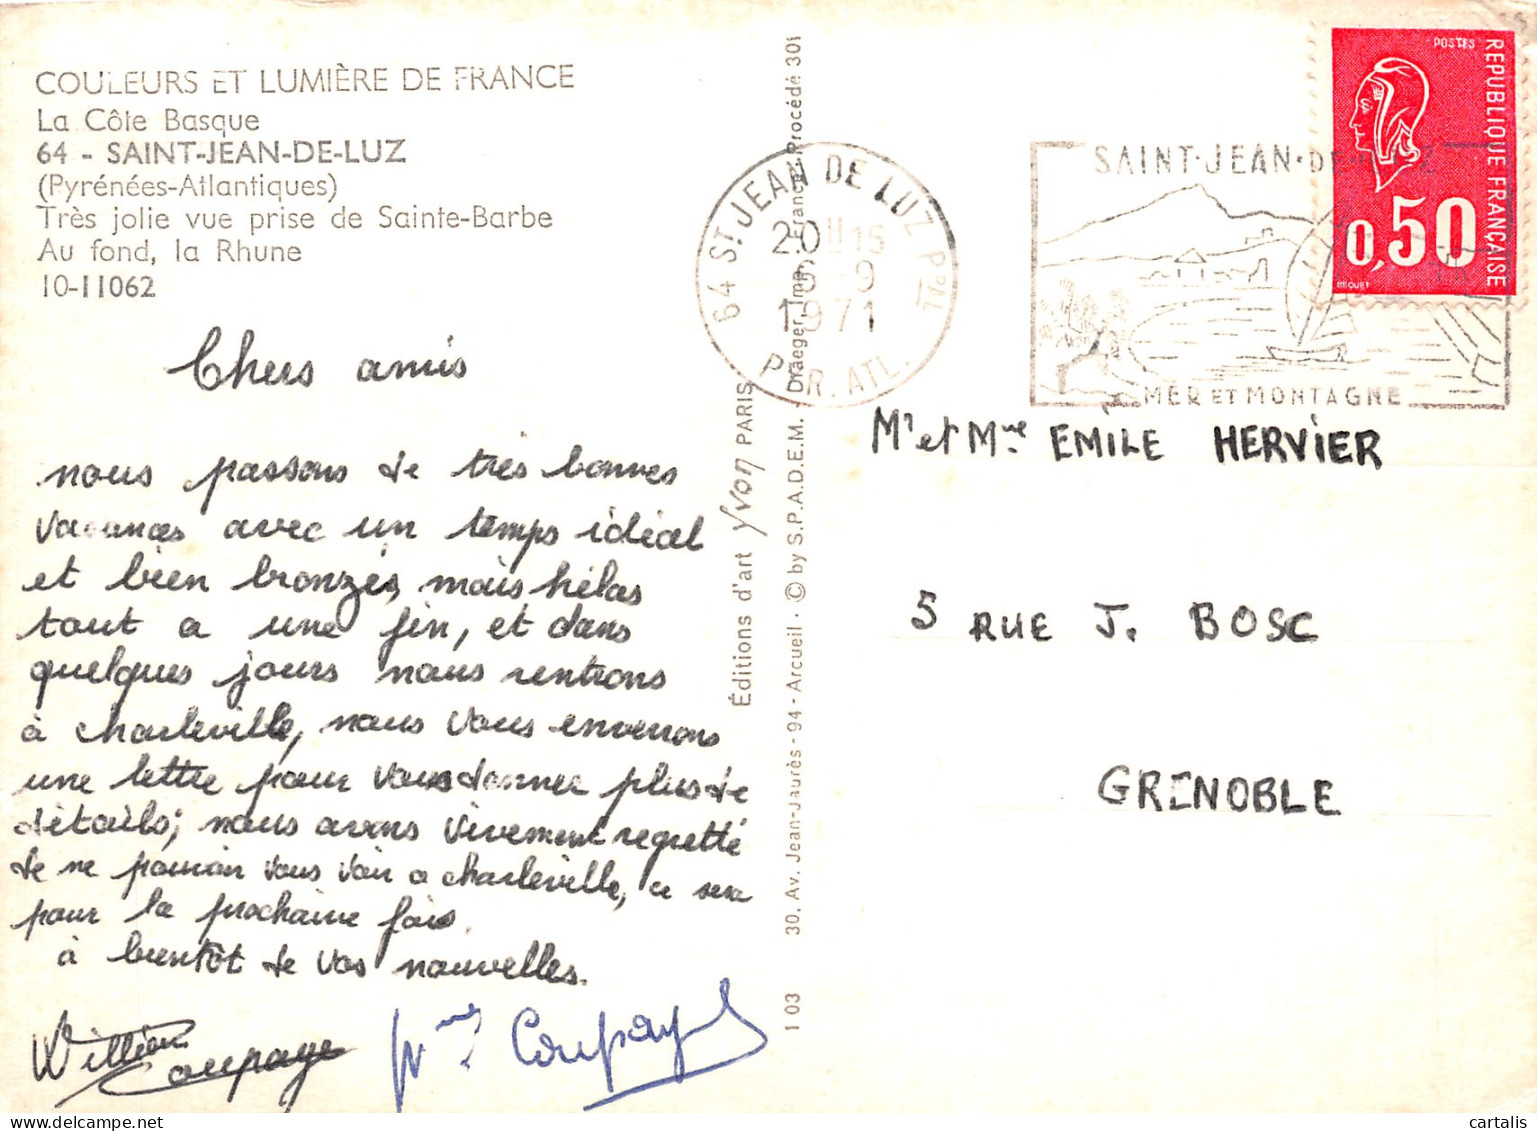 COULEURS ET LUMIÈRE DE FRANCE
La Côte Basque
64 - SAINT-JEAN-DE-LUZ
(Pyrénées-Atlantiques)
Très jolie vue prise de Sainte-Barbe
Au fond, la Rhune
10-11062
Chers amis
nous passons de très bonnes
vacances avec un temps idéal
et bien bronzés, mais hélas
tout a une fin, et dans
quelques jours nous rentrons
à charleville, nous vous enverrons
une lettre pour vous donner plus de
détails; nous avons vivement regretté
de ne pouvoir vous voir a charleville, ce sera
pour la prochaine fois.
à bientôt de vos nouvelles.
William
Coupaye
Mme Coupaye
Éditions d'art Yvon PARIS
30, Av. Jean-Jaurès - 94 - Arcueil - © by S.P.A.D.E.M. - Draeger, Imp., France, Procédé 301
1 03
64 ST JEAN DE LUZ PPAL
20 H 15
6-9
1971
PYR. ATL.
SAINT-JEAN-DE-LUZ
MER ET MONTAGNE
POSTES
REPUBLIQUE FRANÇAISE
0,50
BEQUET
Mr et Mme EMILE HERVIER
5 RUE J. BOSC
GRENOBLE
cartalis